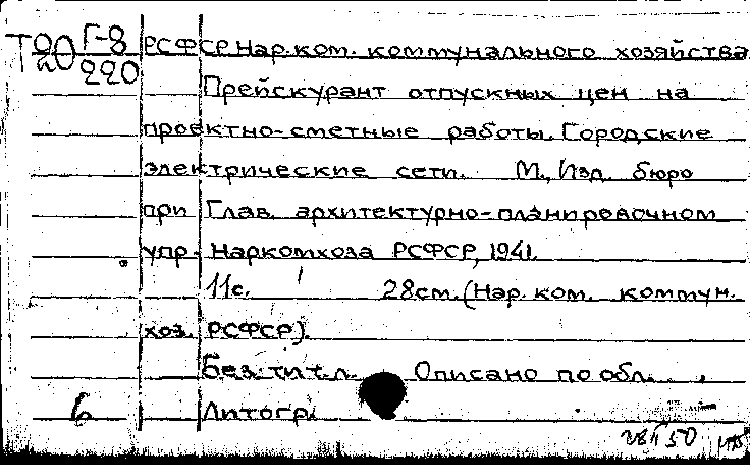 Т20 Г-8 РСФСР Нар. ком. коммунального хозяйства
220
Прейскурант отпускных цен на
проектно-сметные работы. Городские
электрические сети. М., Изд. бюро
при Глав. архитектурно-планировочном
упр. Наркомхоза РСФСР, 1941.
11с. 28см. (Нар. ком. коммун.
хоз. РСФСР).
Без тит. л. Описано по обл.
6 Литогр.